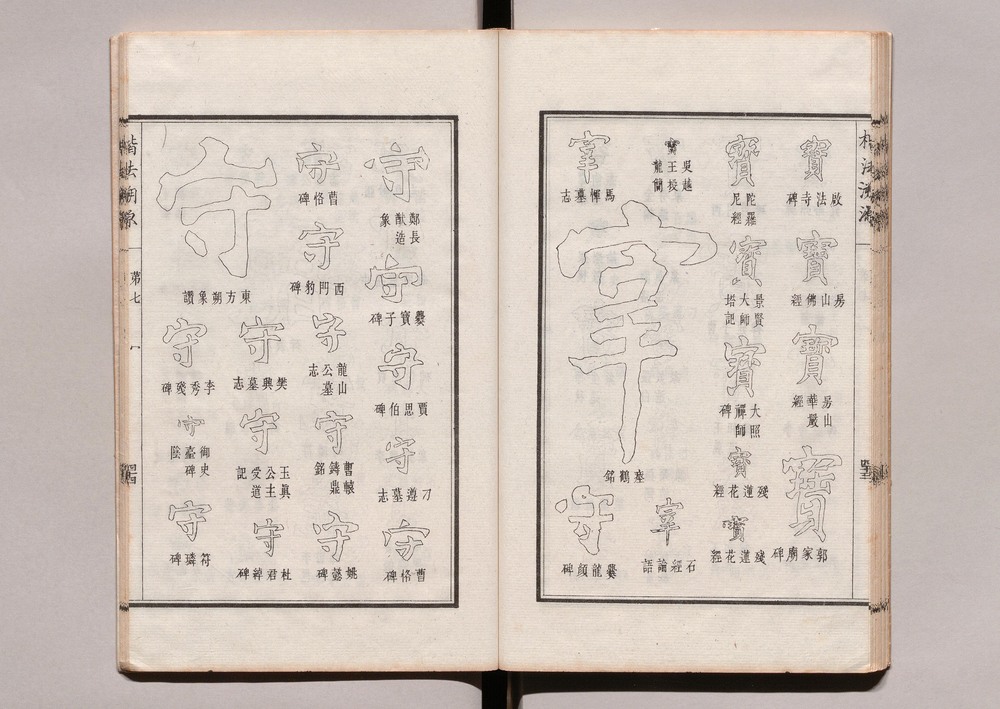 寶
啟法寺碑
寶
房山佛經
寶
房山
華嚴
經
寶
郭家廟碑
寶
陀羅
尼經
寶
景賢
大師
塔記
寶
大照
禪師
碑
寶
殘蓮花經
寶
殘蓮花經
寶
吳越
王投
龍簡
宰
馬惲墓志
宰
瘞鶴銘
宰
石經論語
守
爨龍顏碑
守
鄭長
猷造
象
守
爨寶子碑
守
賈思伯碑
守
刁遵墓志
守
曹恪碑
守
曹恪碑
守
西門豹碑
守
龍山
公墓
志
守
曹𣝔
鑄鼎
銘
守
姚懿碑
守
東方朔象讚
守
樊興墓志
守
玉真
公主
受道
記
守
杜君綽碑
守
李秀殘碑
守
御史
臺碑
陰
守
符璘碑
楷法溯源
第七